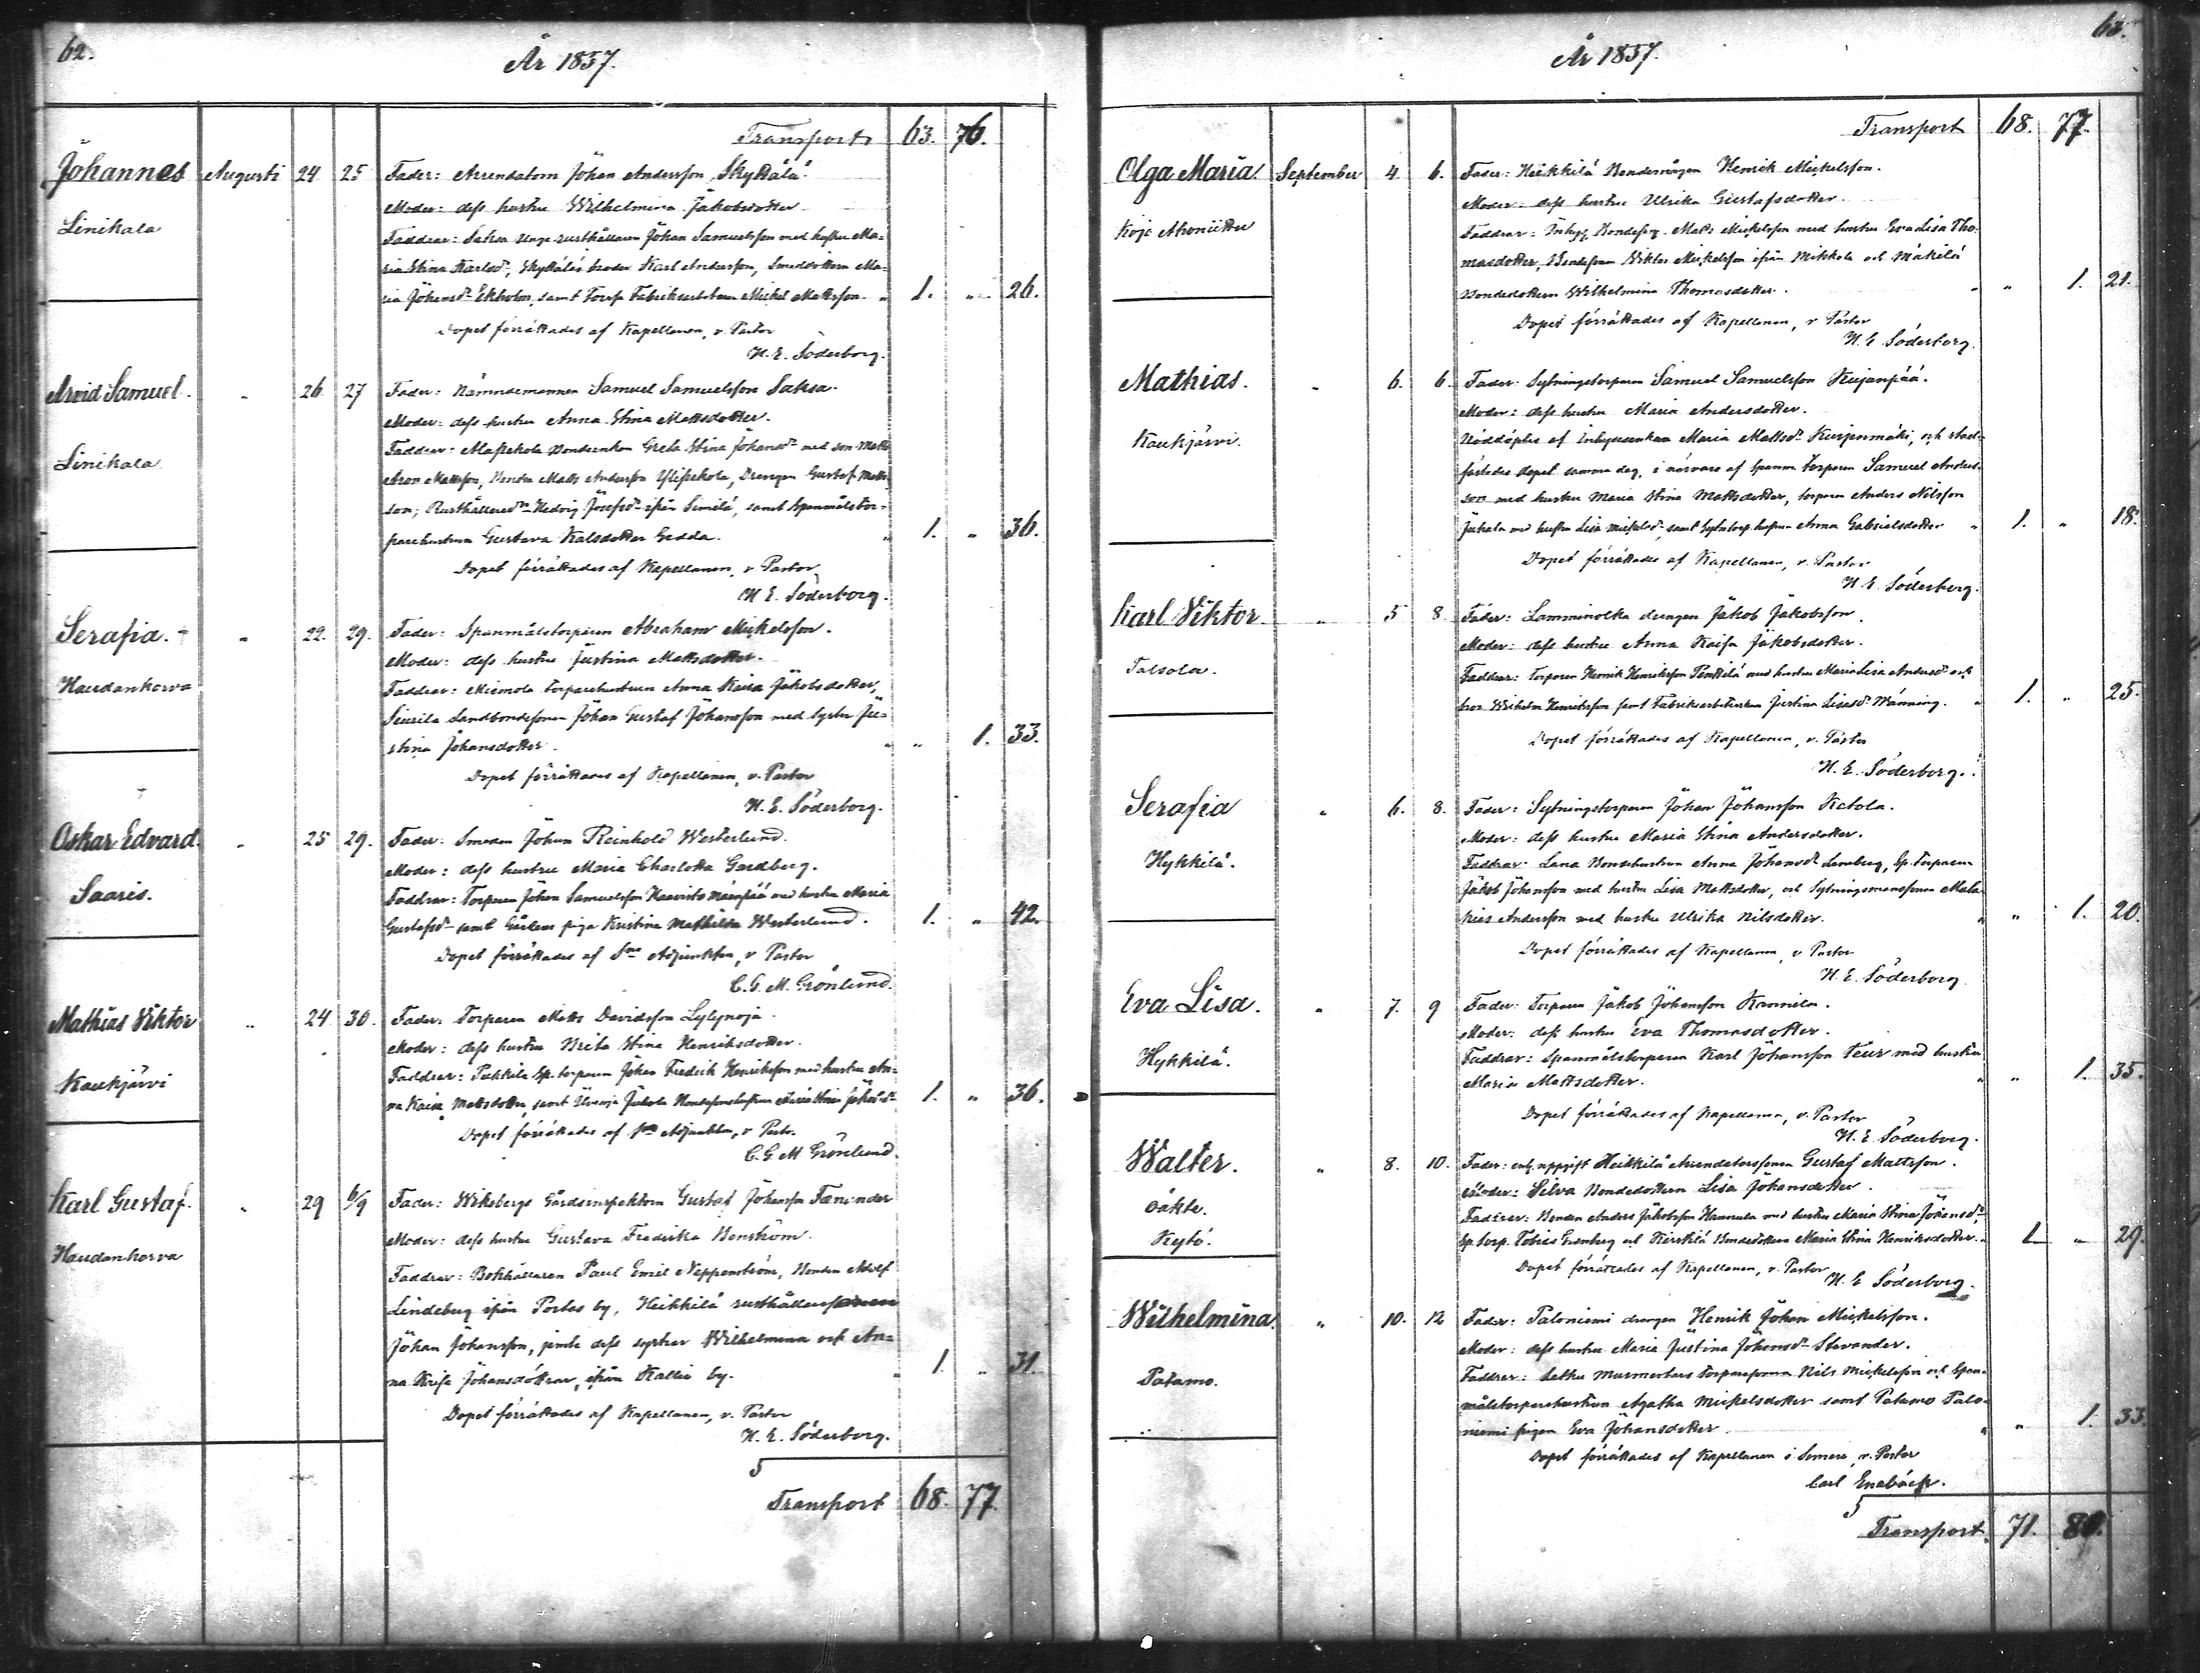 62.
År 1857.
Transport 63. 76.
Johannes Augusti 24 25 Fader: Arrendatorn Johan Andersson Skyttälä.
Linikala
Moder: dess hustru Wilhelmina Jakobsdotter
Faddrar: Saksa unge rusthållaren Johan Samuelsson med hustru Ma-
ria Stina Karlsdr, Skyttälä broder Karl Andersson, Smeddottern Ma-
ria Johansdr Ekholm, samt Fabriksarbetaren Mickel Mattsson. " 1. " 26.
Dopet förrättades af Kapellanen, v. Pastor
H. E. Söderborg.
Arvid Samuel. " 26 27 Fader: Nämndemannen Samuel Samuelsson Saksa.
Linikala
Moder: dess hustru Anna Stina Mattsdotter.
Faddrar: Bondenkan Greta Stina Johansdr med son Matts
Aron Mattsson, Bonden Matts Andersson, Drengen Gustaf Matts-
son, Hedvig Josefsdr ifrån Similä, samt spanmålstor-
parehustrun Gustava Kalsdotter Gedda. " 1. " 36.
Dopet förrättades af Kapellanen, v. Pastor
H. E. Söderborg.
Serafia. + " 22. 29. Fader: Spanmålstorparen Abraham Mickelsson.
Haudankorva
Moder: dess hustru Justina Mattsdotter.
Faddrar: torparehustrun Anna Kaisa Jakobsdotter,
Landbondesonen Johan Gustaf Johansson med syster Ju-
stina Johansdotter. " " 1. 33.
Dopet förrättades af Kapellanen, v. Pastor
H. E. Söderborg.
Oskar Edvard. " 25 29. Fader: Smeden Johan Reinhold Westerlund.
Saaris.
Moder: dess hustru Maria Charlotta Gardberg.
Faddrar: Torparen Johan Samuelsson med hustru Maria
Gustafsdr samt piga Kristina Mathilda Westerlund. 1. " 42.
Dopet förrättades af Adjunkten, v Pastor
C. G. M. Grönlund.
Mathias Viktor " 24 30. Fader: Torparen Matts Davidsson Lylynoja.
Kaukjärvi
Moder: dess hustru Brita Stina Henriksdotter.
Faddrar: Sp. torparen Johan Fredrik Henriksson med hustru An-
na Kaisa Mattsdotter, samt Johansdr 1. " 36.
Dopet förrättades af Adjunkten, v Pastor
C. G M Grönlund.
Karl Gustaf. " 29 6/9 Fader: Wiksbergs Gårdsinspektorn Gustaf Johansson
Haudankorva
Moder: dess hustru Gustava Fredrika Benström.
Faddrar: Bokhållaren Paul Emil Neppenström, Bonden Adolf
Lindeberg ifrån Portas by, Heikkilä rusthållaresonen
Johan Johansson, jemte dess systrar Wilhelmina och An-
na Johansdöttrar, ifrån Kallio by. " 1. " 31.
Dopet förrättades af Kapellanen, v. Pastor
H. E. Söderborg.
5
Transport 68. 77.
63.
År 1857.
Transport 68. 77.
Olga Maria. September 4 6. Fader: Heikkilä Bondemågen Henrik Mickelsson.
Kojo
Moder: dess hustru Ulrika Gustafsdotter.
Faddrar: Matts Mickelsson med hustru Eva Lisa Tho-
masdotter, Bondesonen Viktor Mickelsson ifrån Mikkola och Mäkilä
Bondedottern Wilhelmina Thomasdotter. " " 1. 21.
Dopet förrättades af Kapellanen, v Pastor
H. E Söderborg.
Mathias. " 6. 6 Fader: Sytningstorparen Samuel Samuelsson Kujanpää.
Kaukjärvi.
Moder: dess hustru Maria Andersdotter.
Nöddöptes af Inhysesenkan Maria Mattsdr, och stad-
fästades dopet samma dag, i närvaro af torparen Samuel Anders-
son med hustru Maria Stina Mattsdotter, torparen Anders Nilsson
Jukola med hustru Lisa Mickelsdr samt Anna Gabrielsdotter " 1. " 18.
Dopet förrättades af Kapellanen, v. Pastor
H. E. Söderborg.
Karl Viktor. " 5 8. Fader: Lamminolka drengen Jakob Jakobsson.
Talsola.
Moder: dess hustru Anna Kaisa Jakobsdotter.
Faddrar: Torparen Henrik Henriksson Penttilä med hustru Maria Lisa Andersdr och
bror Wilhelm Henriksson samt Justina Lisasdr Männing. " 1. " 25.
Dopet förrättades af Kapellanen, v. Pastor
H. E. Söderborg.
Serafia " 6. 8. Fader: Sytningstorparen Johan Johansson Katola.
Hykkilä.
Moder: dess hustru Maria Stina Andersdotter.
Faddrar: Lana Bondehustrun Anna Johansdr Lineberg, Sp. Torparen
Jakob Johansson med hustru Lisa Mattsdotter, och Sytningsmanssonen Mala-
kias Andersson med hustru Ulrika Nilsdotter. " " 1. 20.
Dopet förrättades af Kapellanen, v Pastor
H. E. Söderborg
Eva Lisa. " 7. 9 Fader: Torparen Jakob Johansson Kromila.
Hykkilä.
Moder: dess hustru Eva Thomasdotter.
Faddrar: Spanmålstorparen Karl Johansson Teur med hustru
Maria Mattsdotter. " " 1. 35.
Dopet förrättades af Kapellanen, v. Pastor
H. E Söderborg.
Walter. " 8. 10. Fader: enl. uppgift Heikkilä Arrendatorssonen Gustaf Mattsson.
oäkta.
Moder: Silva Bondedottern Lisa Johansdotter.
Kejtö.
Faddrar: Bonden Anders Jakobsson Hannula med hustru Maria Stina Johansdr,
Sp. torp. Tobias Grönberg och Kirstilä Bondedottern Maria Stina Henriksdotter. " 1. " 29.
Dopet förrättades af Kapellanen, v. Pastor
H. E Söderborg.
Wilhelmina. " 10. 12 Fader: Taloniemi drengen Henrik Johan Mickelsson.
Patamo.
Moder: dess hustru Maria Justina Johansdr Stevander.
Faddrar: Letku torparesonen Nils Mickelsson och Span-
målstorparehustrun Agatha Mickelsdotter samt Patamo Talo-
niemi pigan Eva Johansdotter. " " 1. 33.
Dopet förrättades af Kapellanen i Somero, v. Pastor
Carl Enebäck.
5
Transport 71. 81.